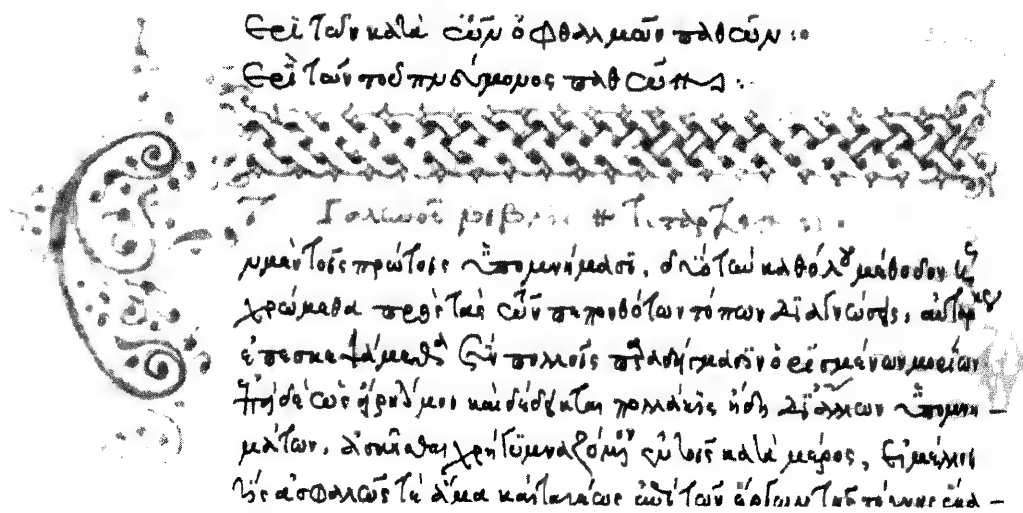 Περὶ τῶν κατὰ τῶν ὀφθαλμῶν παθῶν :
Περὶ τῶν τοῦ πνεύμονος παθῶν :
Γαληνοῦ βιβλίον
Ἐν μὲν τοῖς πρώτοις ὑπομνήμασι, διὸ τῶν καθόλου μέθοδον ᾗ
χρώμεθα πρὸς τὰς τῶν πεπονθότων τόπων διαγνώσεις, αὐτάρκως
ἐπεσκεψάμεθα ἐν πολλοῖς παραδείγμασιν ὁρισμένων μορίων
ἐπεὶ δὲ ὡς εἰρήκαμεν καὶ δέδεικται πολλάκις ἤδη δι' ἄλλων ὑπομνη-
μάτων, ἀσκεῖσθαι χρὴ γυμναζόμενον ἐν τοῖς κατὰ μέρος, εἰ μέλλοι
τις ἀσφαλῶς τε ἅμα καὶ ταχέως ἐπὶ τῶν ἔργων τῆς τέχνης ἕκα-